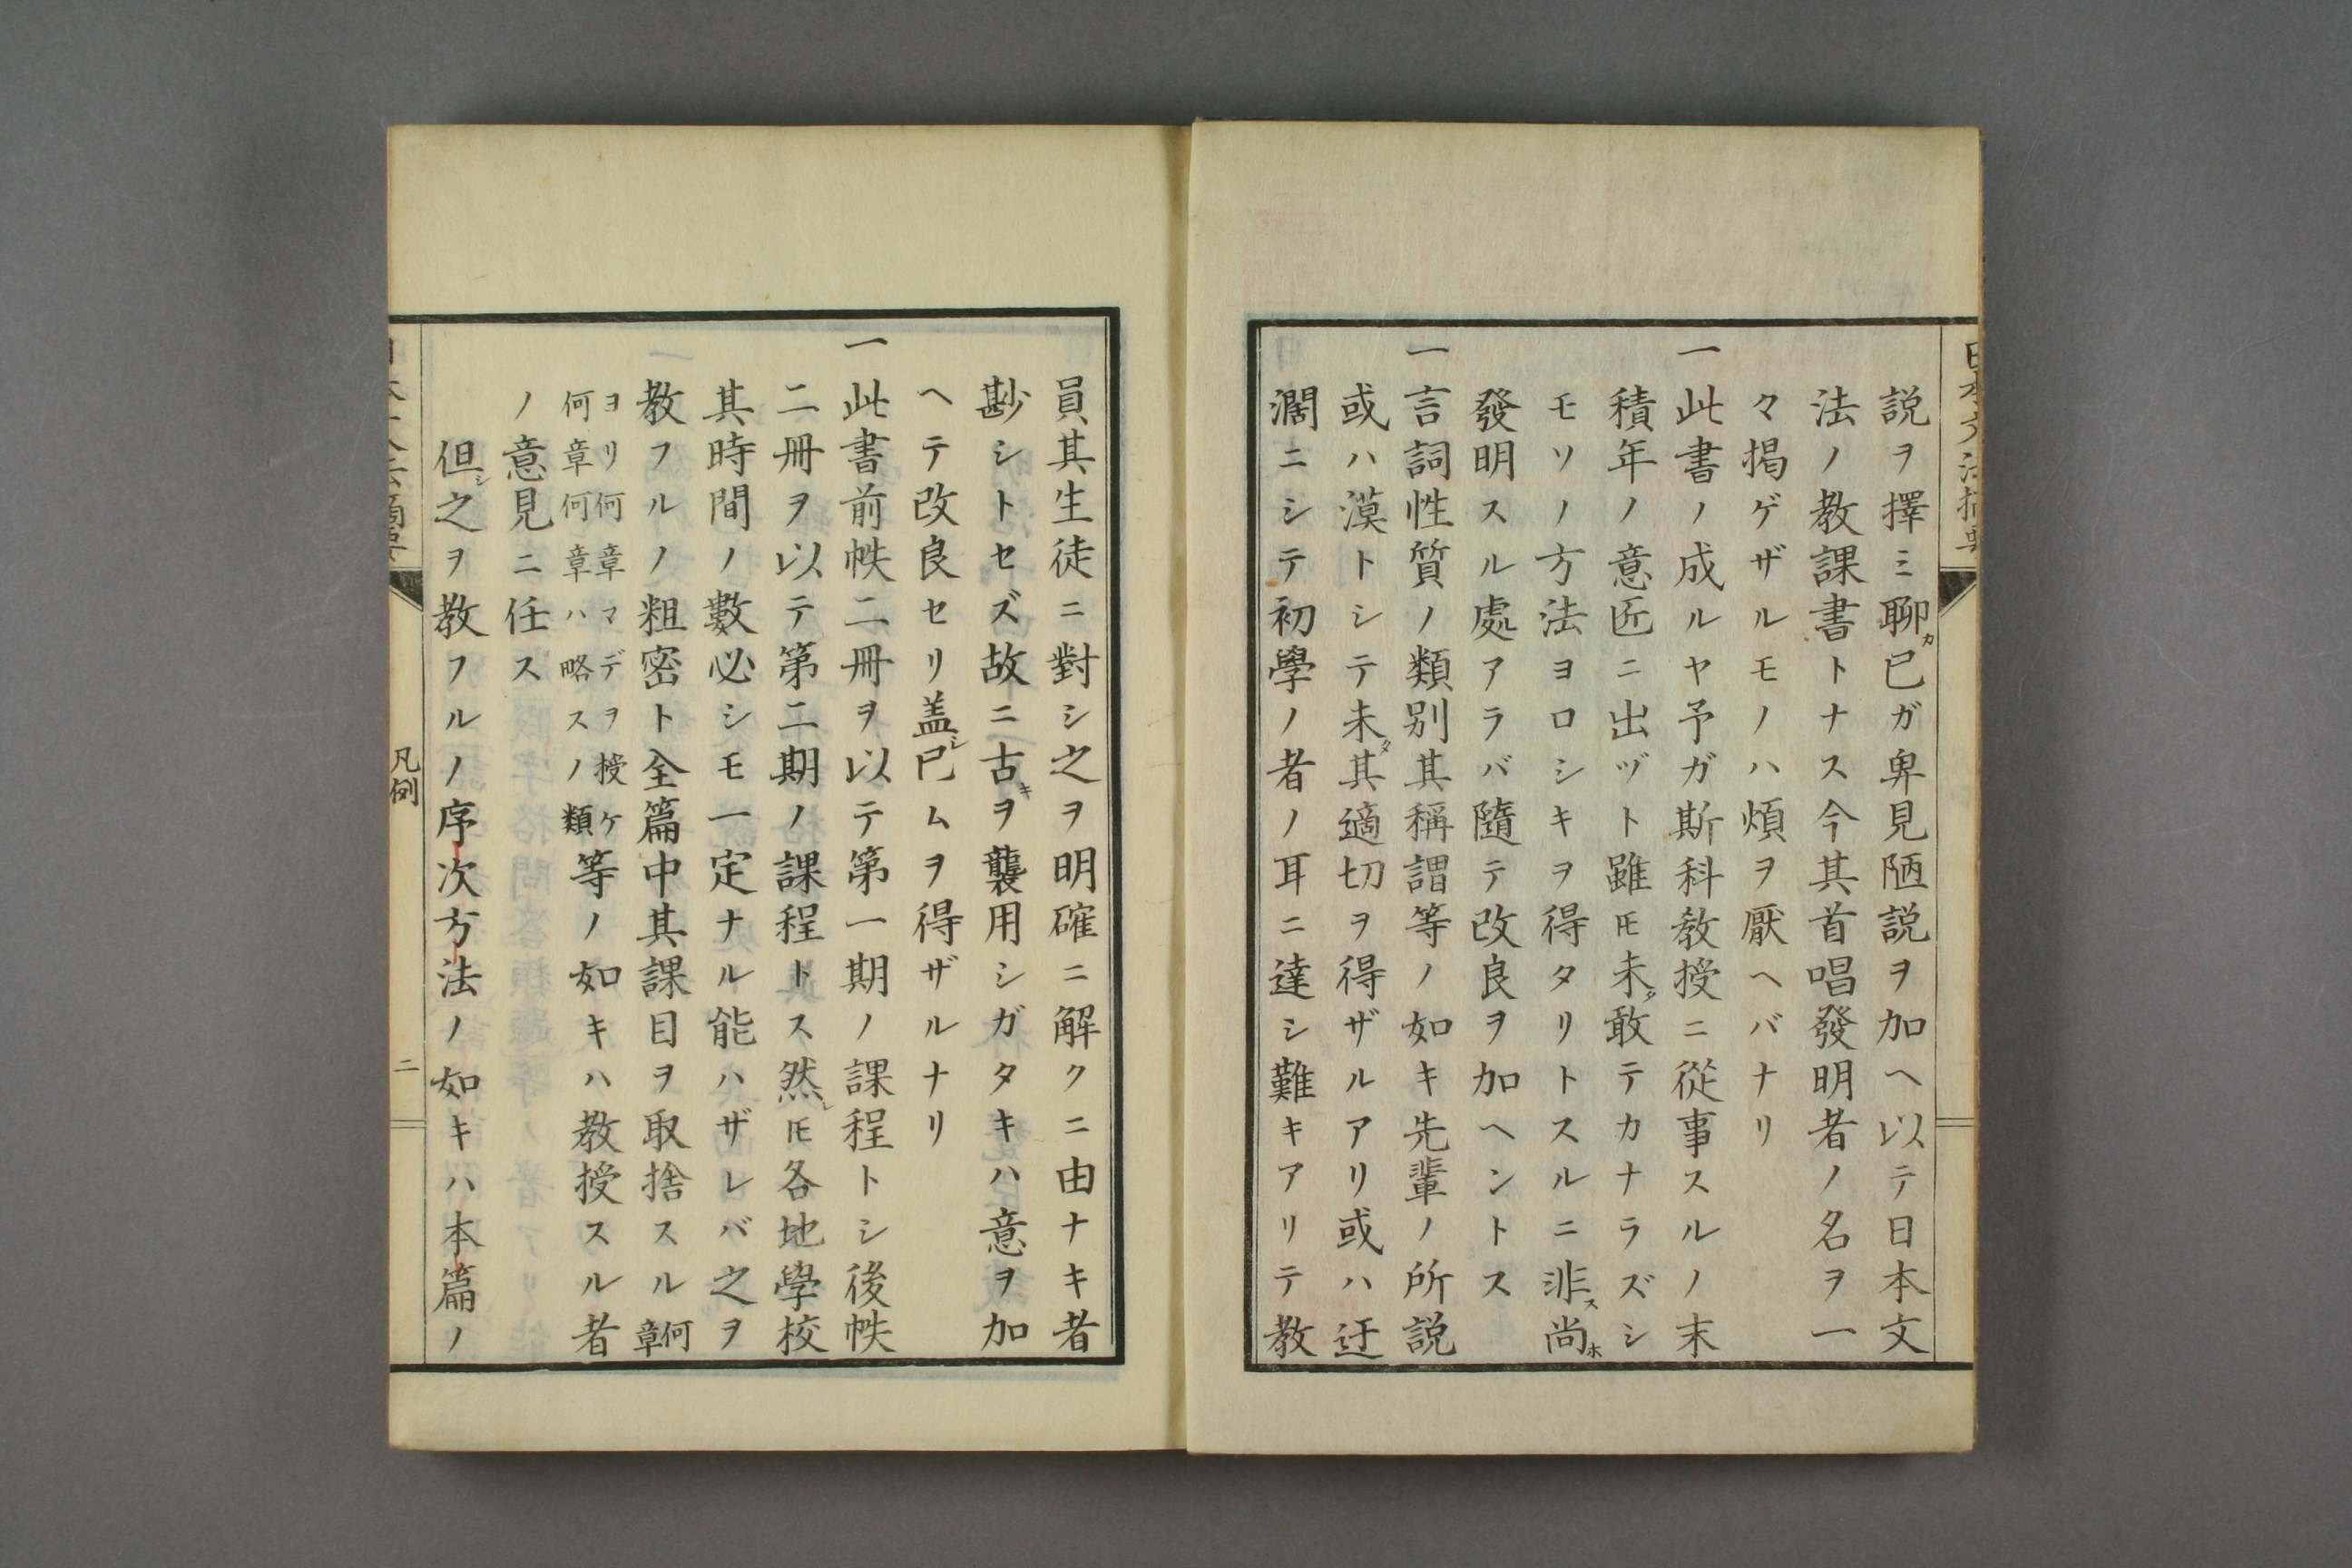 説ヲ擇ミ聊カ已ガ卑見陋説ヲ加ヘ以テ日本文
法ノ教課書トナス今其首唱發明者ノ名ヲ一
々掲ゲザルモノハ煩ヲ厭ヘバナリ
一此書ノ成ルヤ予ガ斯科教授ニ從事スルノ末
積年ノ意匠ニ出ヅト雖𪜈未ダ敢テカナラズシ
モソノ方法ヨロシキヲ得タリトスルニ非ス尚ホ
發明スル處アラバ隨テ改良ヲ加ヘントス
一言詞性質ノ類別其稱謂等ノ如キ先輩ノ所説
或ハ漠トシテ未タ其適切ヲ得ザルアリ或ハ迂
濶ニシテ初學ノ者ノ耳ニ達シ難キアリテ教
員其生徒ニ對シ之ヲ明確ニ解クニ由ナキ者
尠シトセズ故ニ古キヲ襲用シガタキハ意ヲ加
ヘテ改良セリ盖シ已ムヲ得ザルナリ
一此書前帙二冊ヲ以テ第一期ノ課程トシ後帙
二冊ヲ以テ第二期ノ課程トス然レ𪜈各地學校
其時間ノ數必シモ一定ナル能ハザレバ之ヲ
教フルノ粗密ト全篇中其課目ヲ取捨スル何章
ヨリ何章マデヲ授ケ何章何章ハ略スノ類等ノ如キハ教授スル者
ノ意見ニ任ス
但シ之ヲ教フルノ序次方法ノ如キハ本篇ノ
凡例
二